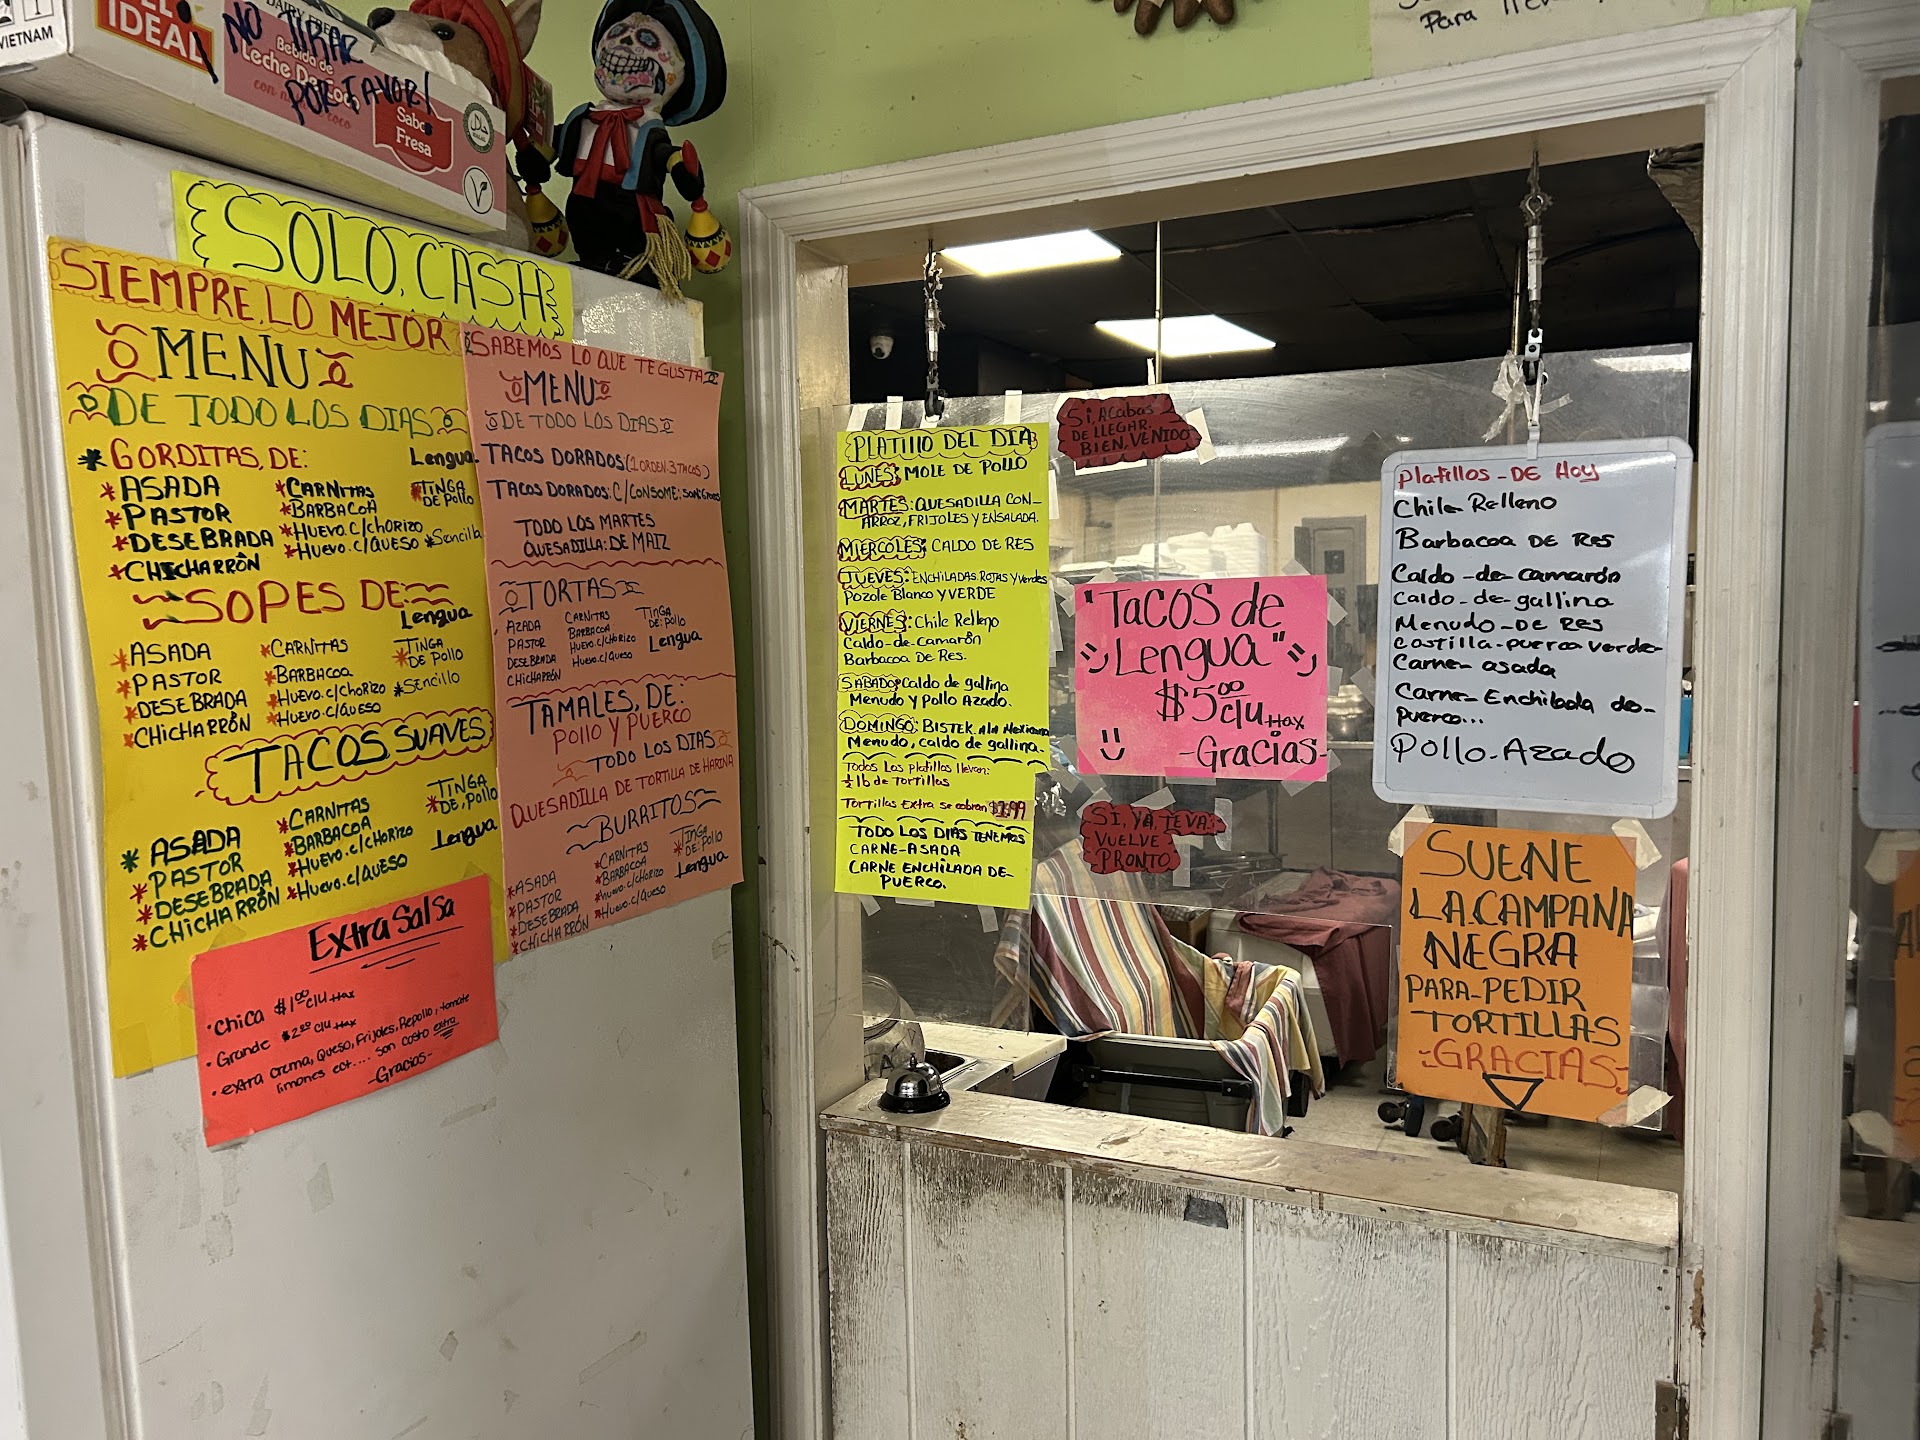 VIETNAM
IDEAL
DAIRY FREE
Bebida de
Leche De Coco
Sabor
Fresa
NO TIRAR
POR FAVOR!
Para llevar
SOLO, CASH
SIEMPRE, LO MEJOR
MENU
DE TODO LOS DIAS
GORDITAS, DE:
Lengua
ASADA
PASTOR
DESEBRADA
CHICHARRÓN
CARNITAS
BARBACOA
HUEVO.C/CHORIZO
HUEVO.C/QUESO
TINGA
DE POLLO
Sencilla
SOPES DE:
Lengua
ASADA
PASTOR
DESEBRADA
CHICHARRÓN
CARNITAS
BARBACOA
HUEVO.C/CHORIZO
HUEVO.C/QUESO
TINGA
DE POLLO
SENCILLO
TACOS SUAVES
ASADA
PASTOR
DESEBRADA
CHICHARRÓN
CARNITAS
BARBACOA
HUEVO.C/CHORIZO
HUEVO.C/QUESO
TINGA
DE, POLLO
Lengua
Extra Salsa
• chica $1.00 c/u +tax
• Grande $2.50 c/u +tax
• extra crema, Queso, Frijoles, Repollo, tomate
limones ect.... son costo extra
-Gracias-
SABEMOS LO QUE TE GUSTA
MENU
DE TODO LOS DIAS
TACOS DORADOS (1 ORDEN-3 TACOS)
TACOS DORADOS: C/CONSOME:
TODO LOS MARTES
QUESADILLA: DE MAIZ
TORTAS
AZADA
PASTOR
DESEBRADA
CHICHARRÓN
CARNITAS
BARBACOA
HUEVO.C/CHORIZO
HUEVO.C/QUESO
TINGA
DE: POLLO
Lengua
TAMALES, DE:
POLLO Y PUERCO
TODO LOS DIAS
QUESADILLA DE TORTILLA DE HARINA
BURRITOS
ASADA
PASTOR
DESEBRADA
CHICHARRÓN
CARNITAS
BARBACOA
HUEVO.C/CHORIZO
HUEVO.C/QUESO
TINGA
DE: POLLO
Lengua
PLATILLO DEL DIA
LUNES: MOLE DE POLLO
MARTES: QUESADILLA CON-
ARROZ, FRIJOLES Y ENSALADA.
MIERCOLES: CALDO DE RES
JUEVES: ENCHILADAS. ROJAS Y Verdes
POZOLE BLANCO Y VERDE
VIERNES: Chile Relleno
Caldo-de-camarón
Barbacoa De Res.
SABADO: Caldo de gallina
Menudo y Pollo Azado.
DOMINGO: BISTEK Ala Mexicana
Menudo, caldo de gallina-
Todos Los Platillos llevan:
½ lb de Tortillas
Tortillas Extra se cobran $1.99
TODO LOS DIAS TENEMOS
CARNE-ASADA
CARNE ENCHILADA DE-
PUERCO.
Si, ACabas
DE LLEGAR.
BIEN, VENIDO
"TACOS de
Lengua"
$5.00 c/u +tax
-Gracias-
Si, YA, TEVA:
VUELVE
PRONTO
Platillos-DE Hoy
Chile Relleno
Barbacoa DE RES
Caldo-de-camarón
Caldo-de-gallina
Menudo-DE RES
Costilla-puerco verde-
Carne asada
Carne-Enchilada de-
puerco...
Pollo-Azado
SUENE
LA.CAMPANA
NEGRA
PARA-PEDIR
TORTILLAS
-GRACIAS-